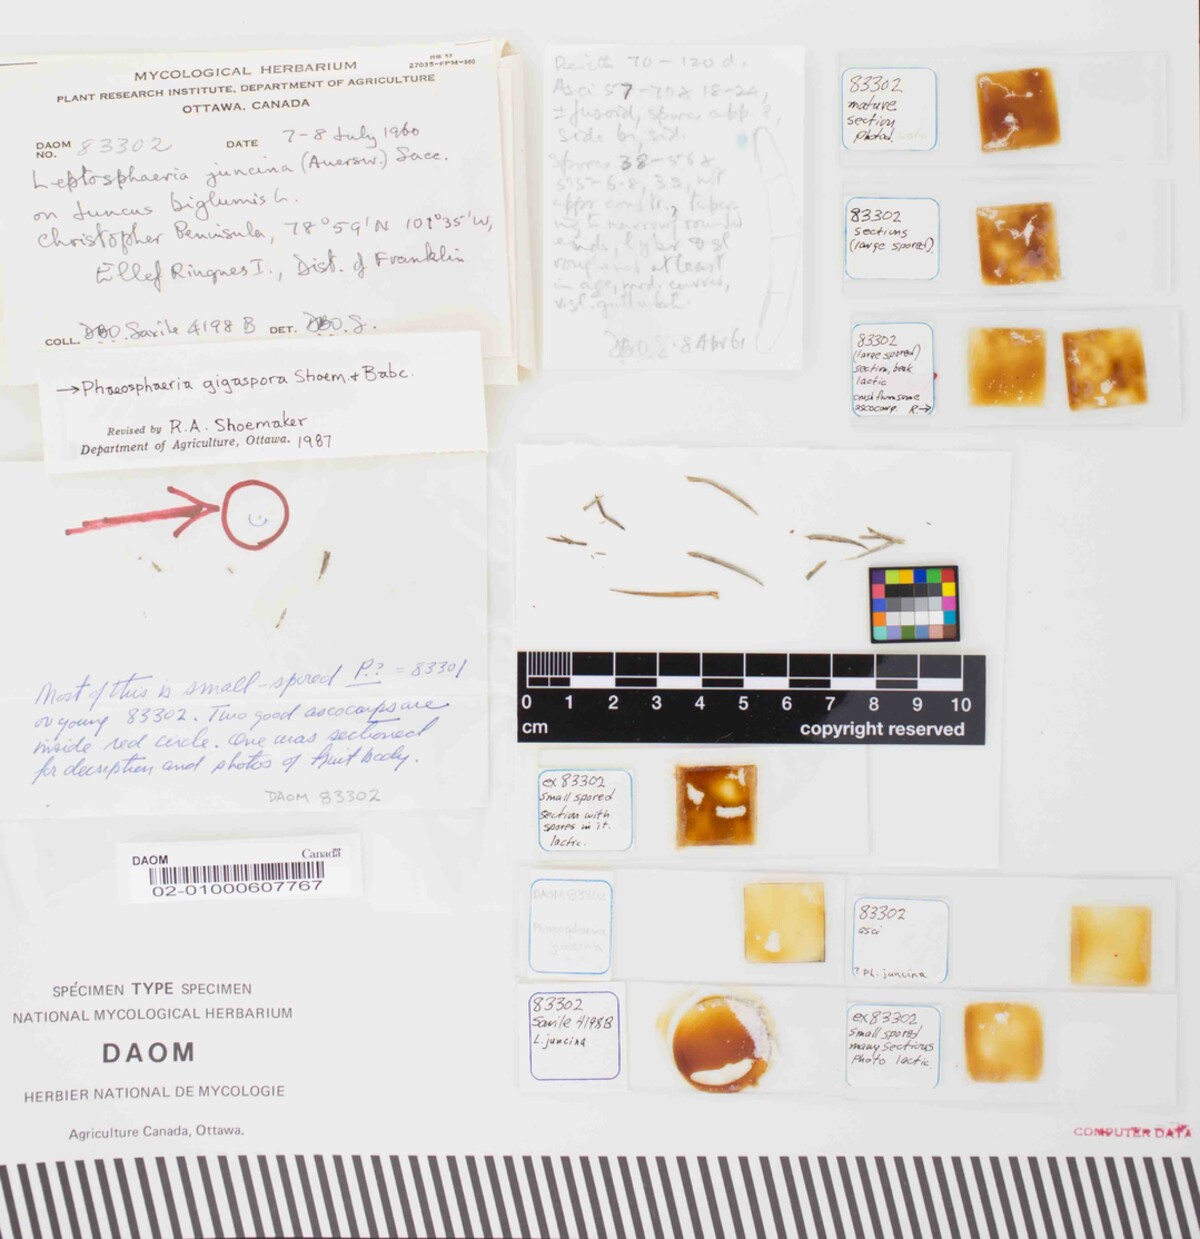 MYCOLOGICAL HERBARIUM
PLANT RESEARCH INSTITUTE, DEPARTMENT OF AGRICULTURE
OTTAWA, CANADA
DAOM NO. 83302 DATE 7-8 July 1960
Leptosphaeria juncina (Auersw.) Sacc.
on Juncus biglumis L.
Christopher Peninsula, 78°59'N 101°35'W,
Ellef Ringnes I., Dist. of Franklin
COLL. DBO Savile 4198 B DET. DBO.S.
→Phaeosphaeria gigaspora Shoem. & Babc.
Revised by R.A. Shoemaker
Department of Agriculture, Ottawa. 1987
Most of this is small-spored P.? = 83301
or young 83302. Two good ascocarps are
inside red circle. One was sectioned
for description and photos of fruit body.
DAOM 83302
DAOM Canada
02-01000607767
SPÉCIMEN TYPE SPECIMEN
NATIONAL MYCOLOGICAL HERBARIUM
DAOM
HERBIER NATIONAL DE MYCOLOGIE
Agriculture Canada, Ottawa.
70-120 d.
Asci 57-70 x 18-24,
± fusoid, spores app. 8,
side by side.
Spores 38-58 x
ends,
rough and at least
in age, mod. curved,
83302
mature
section
photo
83302
sections
(large spored)
83302
(large spored)
section, beak
lactic
crush from same
ascocarp. R→
0 1 2 3 4 5 6 7 8 9 10
cm copyright reserved
ex 83302
small spored
section with
spores in it.
lactic.
DAOM 83302
Phaeosphaeria
juncina
83302
asci
? Ph. juncina
83302
Savile 4198B
L. juncina
ex 83302
small spored
many sections
photo lactic.
COMPUTER DATA